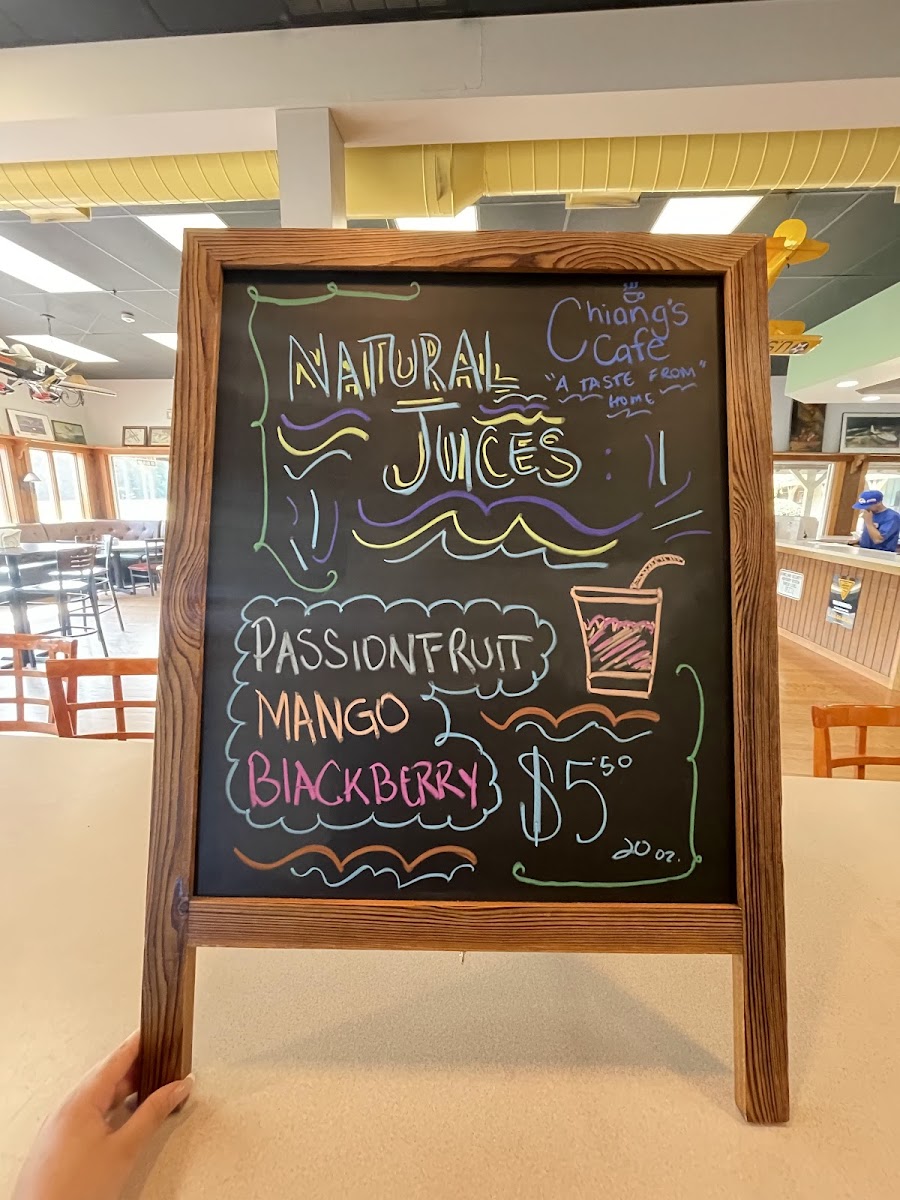 Chiang's
Café
"A TASTE FROM"
HOME
NATURAL
JUICES
PASSIONFRUIT
MANGO
BlACKBERRY
$5.50
20 oz.